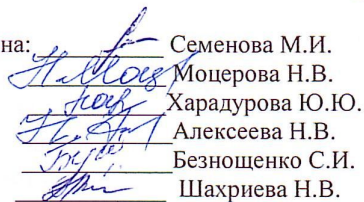 на: Семенова М.И.
Моцерова Н.В.
Харадурова Ю.Ю.
Алексеева Н.В.
Безнощенко С.И.
Шахриева Н.В.